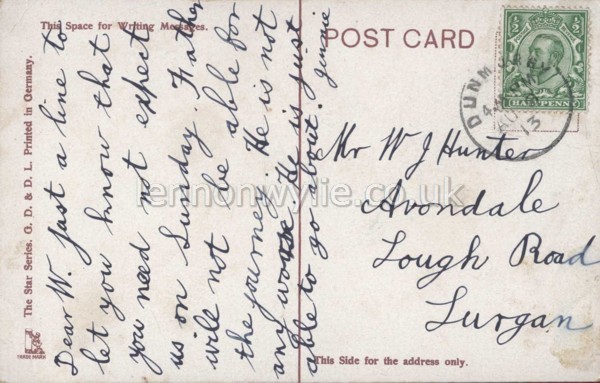 This Space for Writing Messages.
POST CARD
Dear W. Just a line to
let you know that
you need not expect
us on Sunday. Father
will not be able for
the journey. He is not
any worse He is just
able to go about. Jennie
½ ½
HALFPENNY
DUNM
13
Mr W J Hunter
Avondale
Lough Road
Lurgan
lennonwylie.co.uk
The Star Series. G. D. & D. L. Printed in Germany.
TRADE MARK
This Side for the address only.